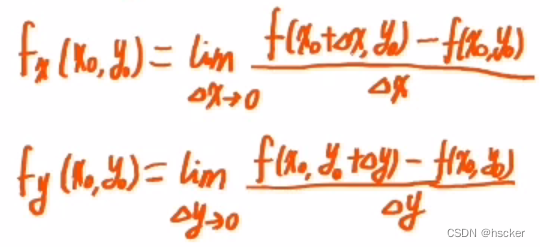 fₓ(x₀,y₀) = lim_{Δx→0} \frac{f(x₀+Δx,y₀)-f(x₀,y₀)}{Δx}
f_y(x₀,y₀) = lim_{Δy→0} \frac{f(x₀,y₀+Δy)-f(x₀,y₀)}{Δy}
CSDN @hscker